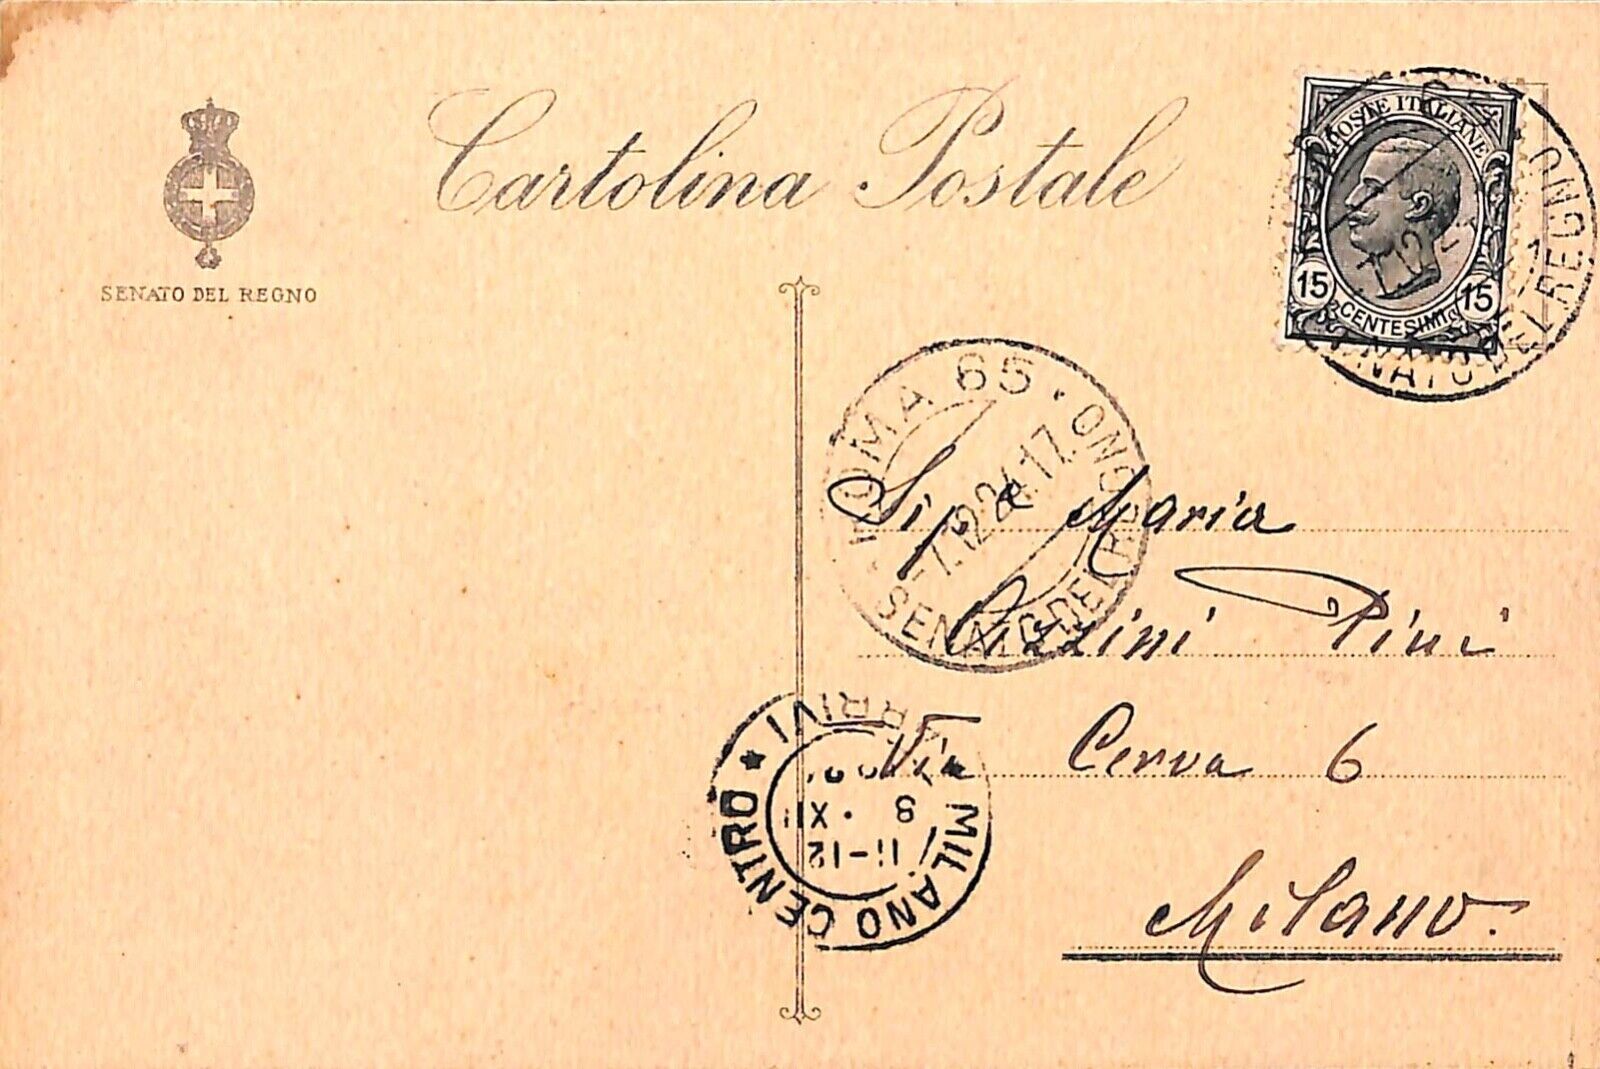 Cartolina Postale
SENATO DEL REGNO
POSTE ITALIANE
15 CENTESIMI 15
SENATO DEL REGNO
ROMA 65
-7.12.24.17
SENATO DEL REGNO
Sig.a Maria
Pini
Via Cerva 6
Milano.
MILANO CENTRO
ARRIVI
11-12
8 · XII